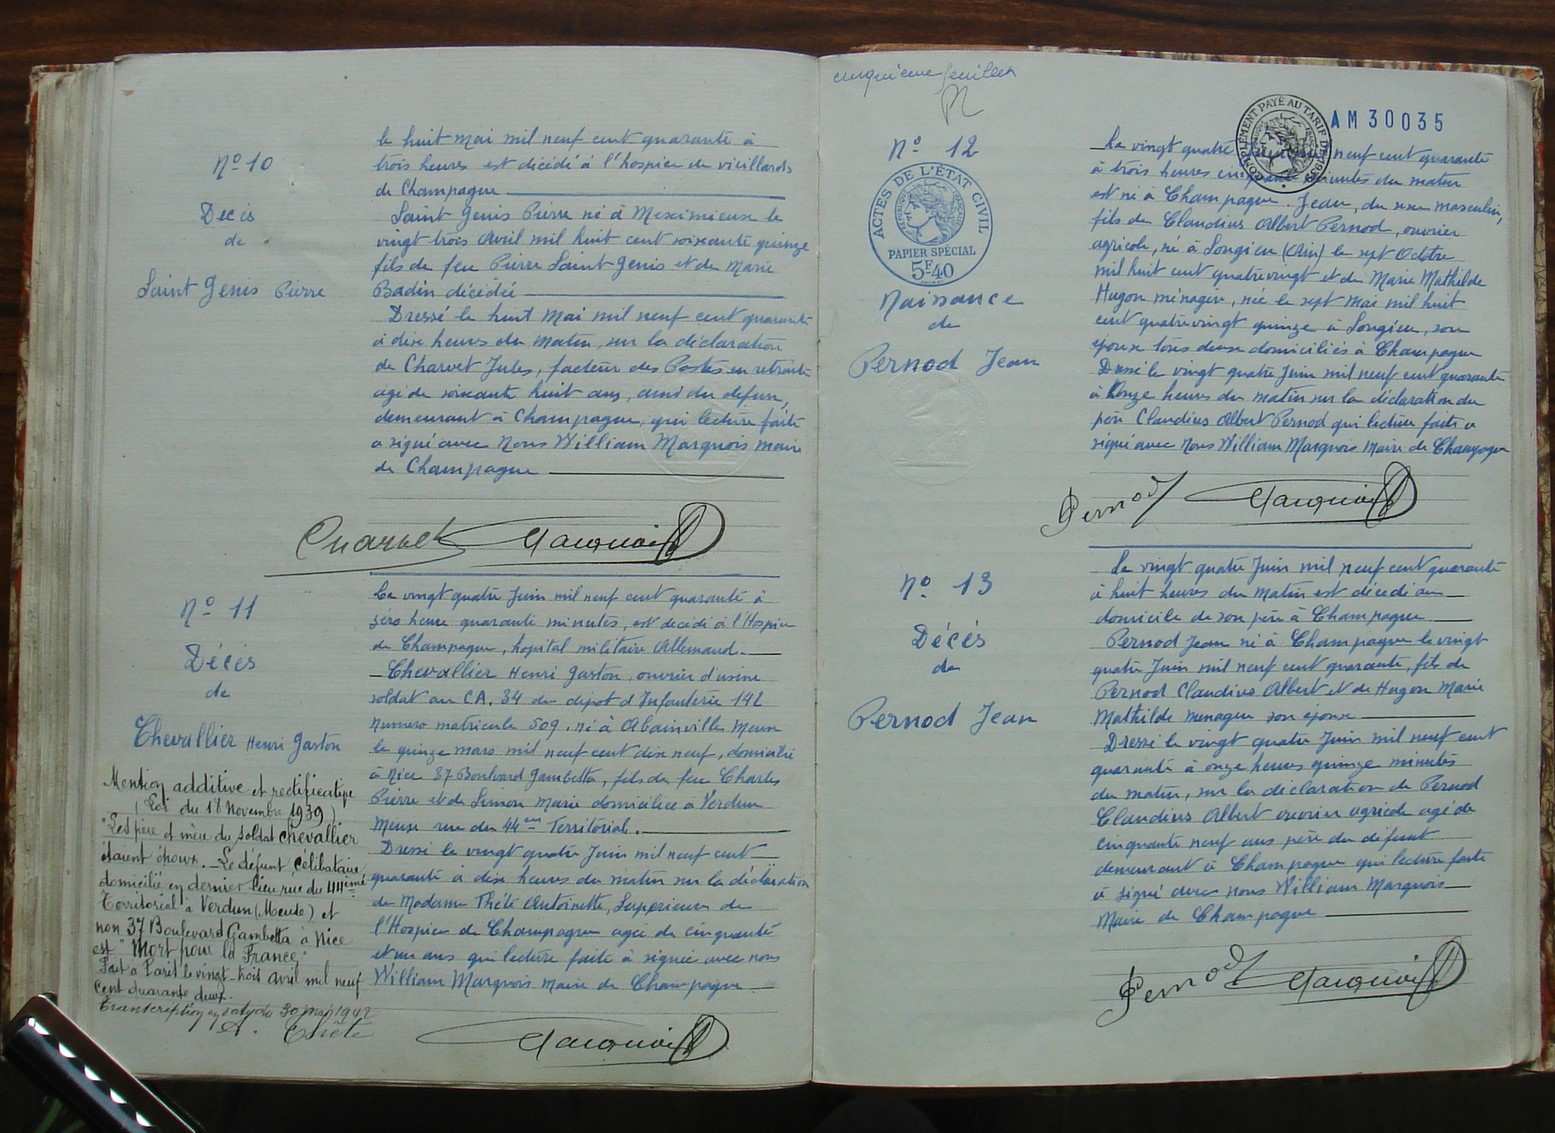 N° 10
Décès
de
Saint Genis Pierre
le huit Mai mil neuf cent quarante à
trois heures est décédé à l'hospice de vieillards
de Champagne
Saint Genis Pierre né à Meximieux le
vingt trois Avril mil huit cent soixante quinze
fils de feu Pierre Saint Genis et de Marie
Badin décédée
Dressé le huit Mai mil neuf cent quarante
à dix heures du matin, sur la déclaration
de Charvet Jules, facteur des Postes en retraite
agé de soixante huit ans, ami du defunt,
demeurant à Champagne, qui lecture faite
a signé avec Nous William Marquois maire
de Champagne
Charvet Marquois
N° 11
Décès
de
Chevallier Henri Gaston
Mention additive et rectificative
(Loi du 18 Novembre 1939)
"Les père et mère du soldat Chevallier
étaient époux. _ Le défunt, célibataire
domicilié en dernier lieu rue du 44ième
Territorial à Verdun (Meuse) et
non 37 Boulevard Gambetta à Nice
est "Mort pour la France"
Fait à Paris le vingt-huit avril mil neuf
cent quarante deux.
Transcription 30 Mai 1942
A. Thété
Le vingt quatre Juin mil neuf cent quarante à
zéro heure quarante minutes, est décédé à l'Hospice
de Champagne, hopital militaire Allemand.
Chevallier Henri Gaston, ouvrier d'usine
soldat au CA. 34 du dépot d'Infanterie 142
Numero matricule 509, né à Abainville Meuse
le quinze mars mil neuf cent dix neuf, domicilié
à Nice 37 Boulevard Gambetta, fils de feu Charles
Pierre et de Simon Marie domiciliée à Verdun
Meuse rue du 44em Territorial.
Dressé le vingt quatre Juin mil neuf cent
quarante a dix heures du matin sur la déclaration
de Madame Thété Antoinette, Supérieure de
l'Hospice de Champagne agée de cinquante
et un ans qui lecture faite à signée avec nous
William Marquois maire de Champagne
Marquois
cinquième feuillet
N° 12
ACTES DE L'ÉTAT CIVIL
PAPIER SPÉCIAL
5F40
Naissance
de
Pernod Jean
COMPLÉMENT PAYÉ AU TARIF DE 1939
AM30035
Le vingt quatre neuf cent quarante
à trois heures cinquante minutes du matin
est né à Champagne. Jean, du sexe masculin,
fils de Claudius Albert Pernod, ouvrier
agricole, né à Songieu (Ain) le sept Octobre
mil huit cent quatre vingt et de Marie Mathilde
Hugon ménagère, née le sept Mai mil huit
cent quatre vingt quinze à Songieu, son
épouse tous deux domiciliés à Champagne
Dressé le vingt quatre Juin mil neuf cent quarante
à onze heures du matin sur la déclaration du
père Claudius Albert Pernod qui lecture faite a
signé avec Nous William Marquois Maire de Champagne
Pernod Marquois
N° 13
Décès
de
Pernod Jean
Le vingt quatre Juin mil neuf cent quarante
à huit heures du matin est décédé au
domicile de son père à Champagne
Pernod Jean né à Champagne le vingt
quatre Juin mil neuf cent quarante, fils de
Pernod Claudius Albert et de Hugon Marie
Mathilde menagère son épouse
Dressé le vingt quatre Juin mil neuf cent
quarante à onze heures quinze minutes
du matin, sur la déclaration de Pernod
Claudius Albert ouvrier agricole agé de
cinquante neuf ans père du défunt
demeurant à Champagne qui lecture faite
à signé avec nous William Marquois
Maire de Champagne
Pernod Marquois